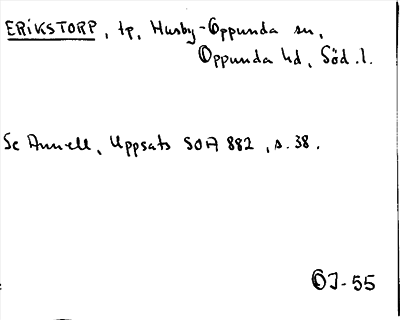 ERIKSTORP, tp, Husby-Oppunda sn,
Oppunda hd, Söd.l.
Se Annell, Uppsats SOA 882, s. 38.
OJ-55